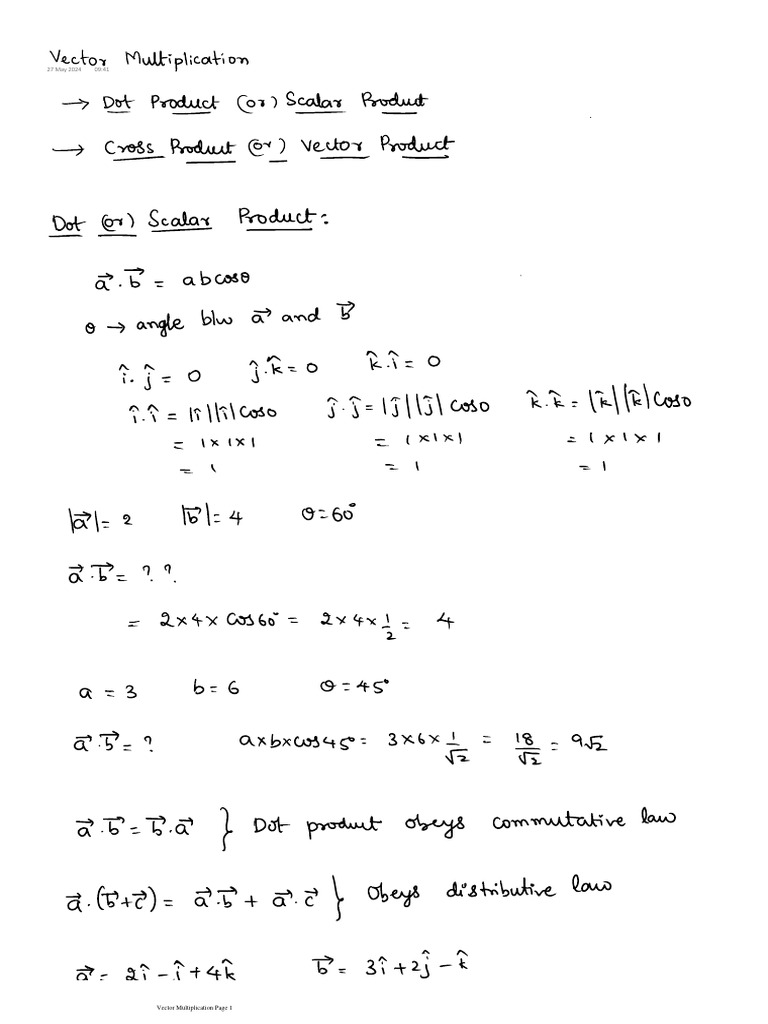 Vector Multiplication
27 May 2024 09:41
→ Dot Product (or) Scalar Product
→ Cross Product (or) Vector Product
Dot (or) Scalar Product:
a⃗ . b⃗ = a b cosθ
θ → angle b/w a⃗ and b⃗
î . ĵ = 0 ĵ . k̂ = 0 k̂ . î = 0
î . î = |î| |î| cos0 ĵ . ĵ = |ĵ| |ĵ| cos0 k̂ . k̂ = |k̂| |k̂| cos0
= 1 × 1 × 1 = 1 × 1 × 1 = 1 × 1 × 1
= 1 = 1 = 1
|a⃗| = 2 |b⃗| = 4 θ = 60°
a⃗ . b⃗ = ? ?
= 2 × 4 × cos 60° = 2 × 4 × 1/2 = 4
a = 3 b = 6 θ = 45°
a⃗ . b⃗ = ? a × b × cos 45° = 3 × 6 × 1/√2 = 18/√2 = 9√2
a⃗ . b⃗ = b⃗ . a⃗ } Dot product obeys commutative law
a⃗ . (b⃗ + c⃗) = a⃗ . b⃗ + a⃗ . c⃗ } Obeys distributive law
a⃗ = 2î - î + 4k̂ b⃗ = 3î + 2ĵ - k̂
Vector Multiplication Page 1